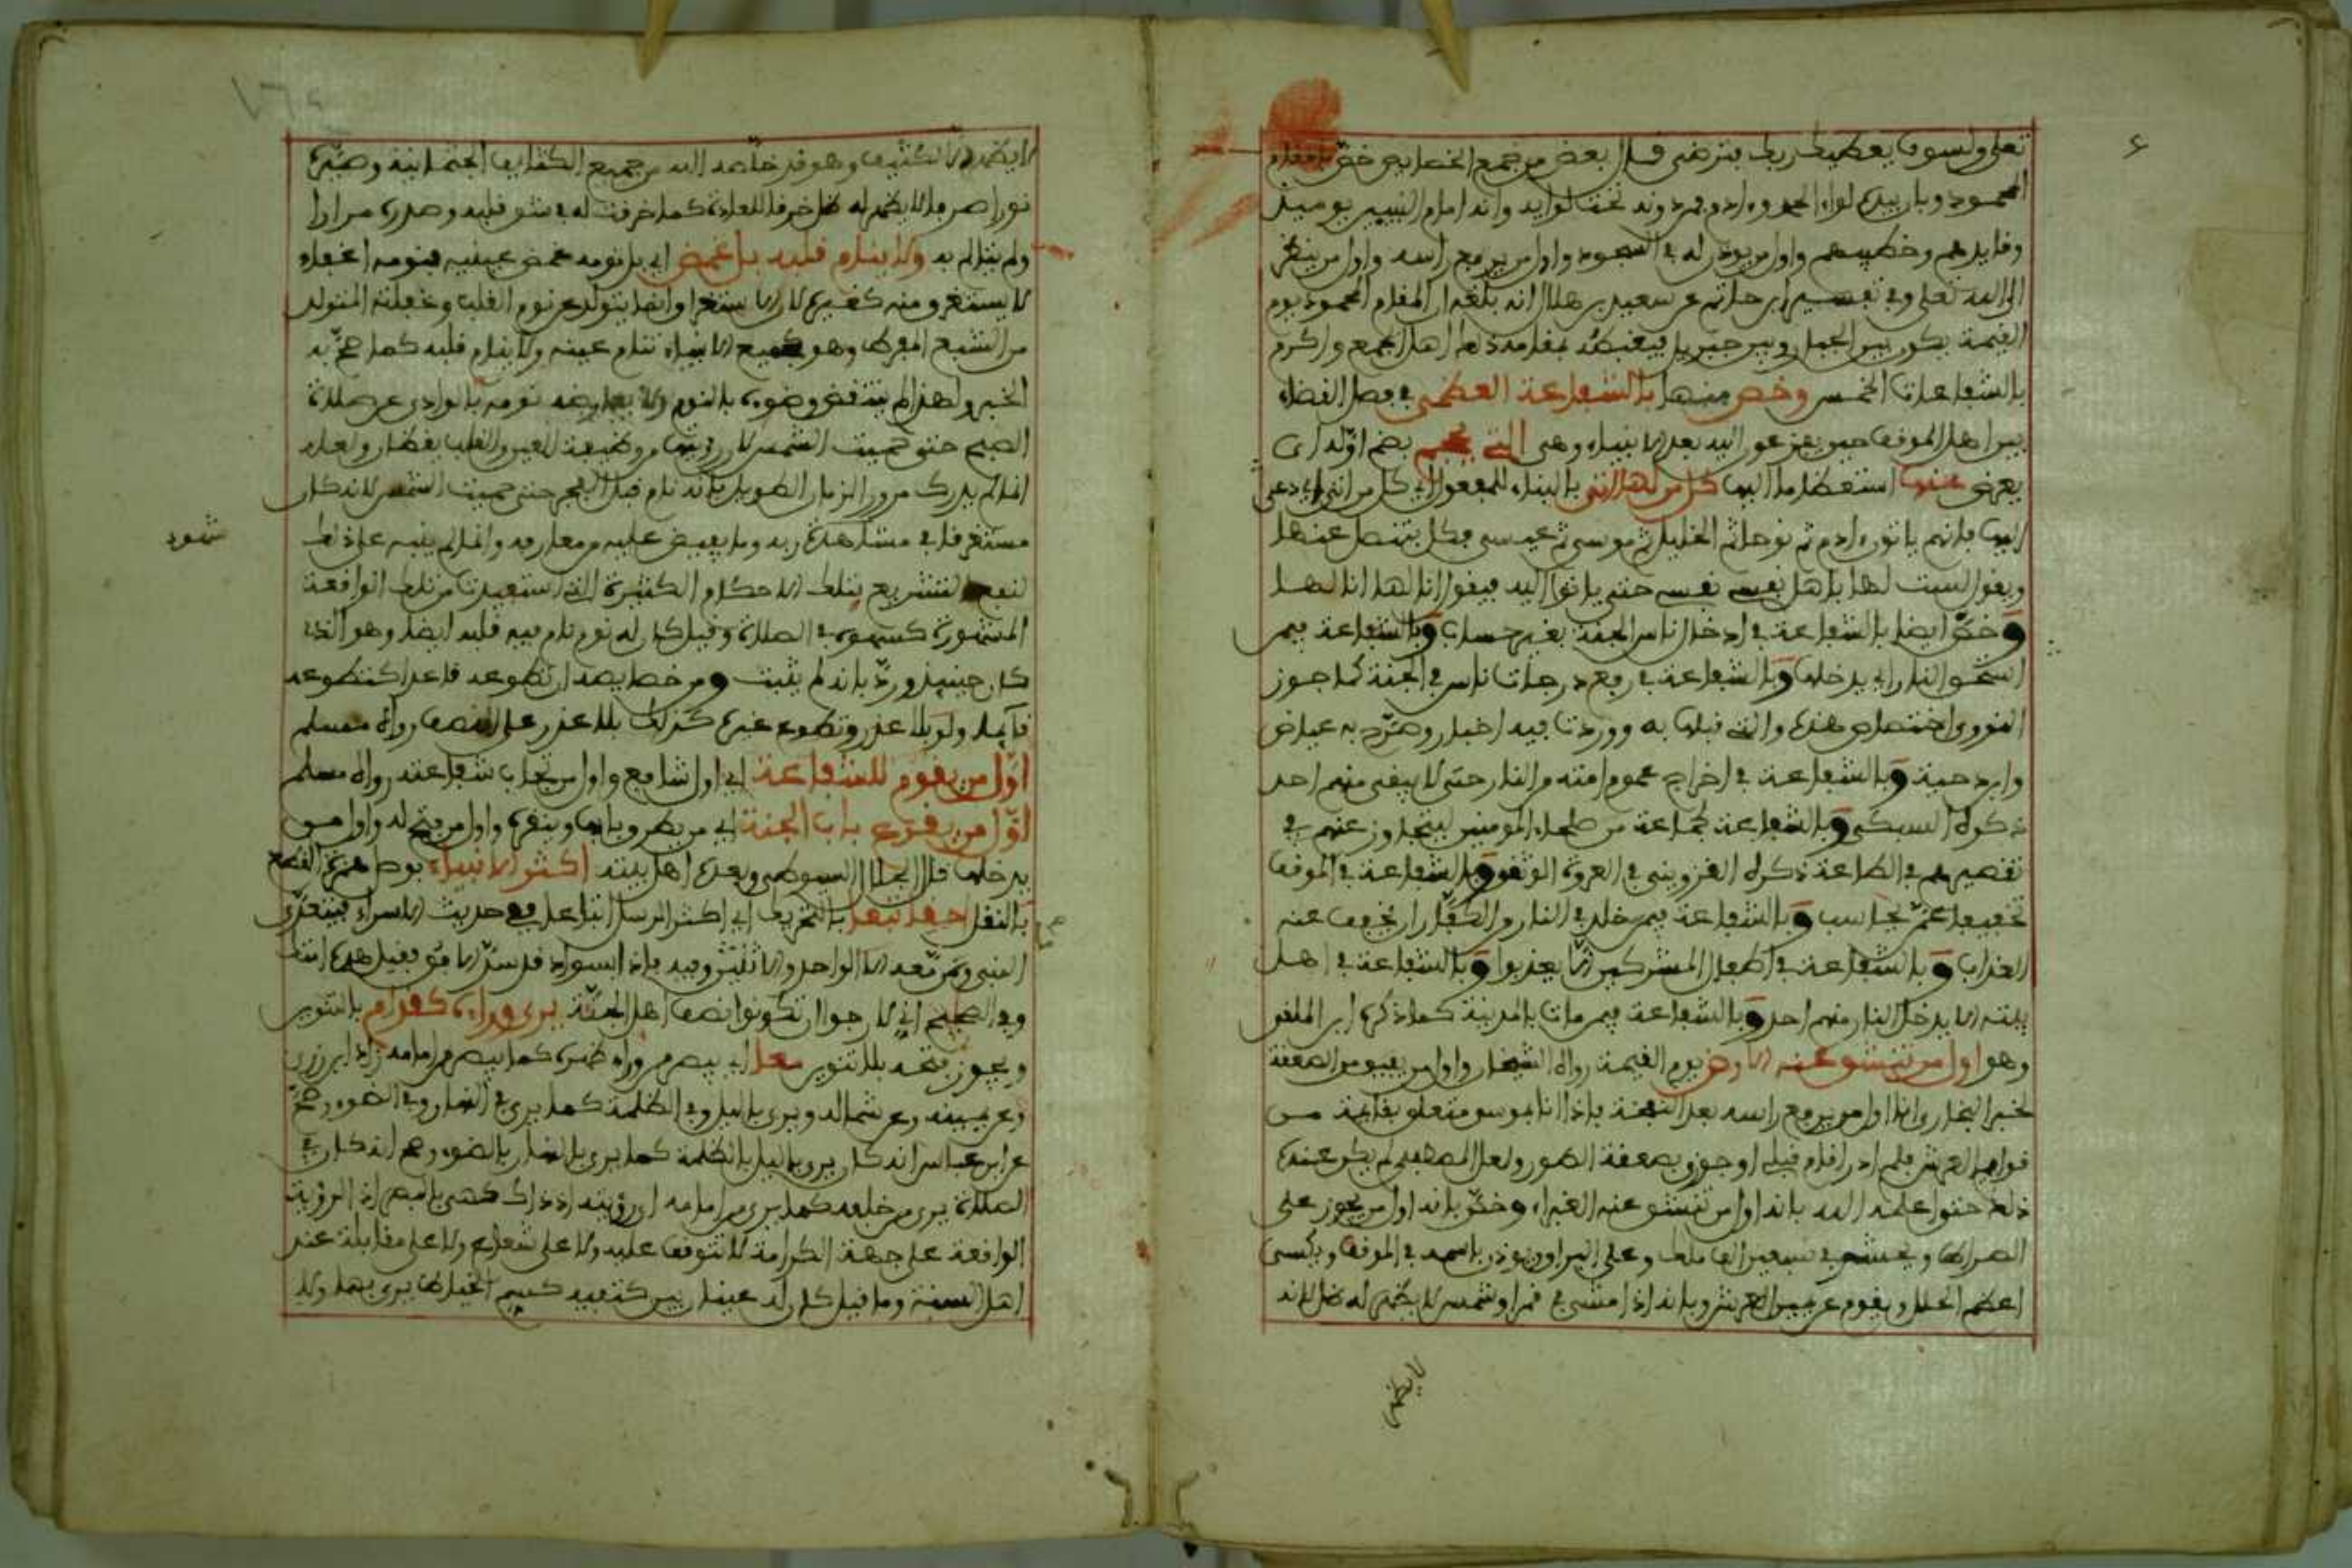 تعلى ولسوف يعطيك ربك فترضى قال بعض من جمع الخصايص خص بالمقام
المحمود وبان بيده لواء الحمد وءادم فمن دونه تحت لوايه وانه امام النبيين يوميذ
وقايدهم وخطيبهم واول من يوذن له في السجود واول من يرفع راسه واول من ينظر
الى الله تعلى وفي تفسير ابن حاتم عن سعيد بن هلال انه بلغه ان المقام المحمود يوم
القيمة يكون بين الجبار وبين جبريل فيغبطه لمقامه ذلك اهل الجمع واكرم
بالشفاعات الخمس وخص منها بالشفاعة العظمى في فصل القضاء
بين اهل الموقف حين يفزعون اليه بعد الانبياء وهي التي يحجم بضم اوله اي
يعرض عنها استعظاما اليها كل من لها انتي بالبناء للمفعول اي كل من دعي
اليها فانهم ياتون ءادم ثم نوحا ثم الخليل ثم موسى ثم عيسى فكل يتنصل عنها
ويقول لست لها باهل نفسي نفسي حتى ياتوا اليه فيقول انا لها انا لها
وخص ايضا بالشفاعة في ادخال ناس الجنة بغير حساب وبالشفاعة فيمن
استحق النار ان لا يدخلها وبالشفاعة في رفع درجات ناس في الجنة كما جوز
النووي اختصاص هذه والتي قبلها به ووردت فيه اخبار وصرح به عياض
وابن دحية وبالشفاعة في اخراج عموم امته من النار حتى لا يبقى منهم احد
ذكره السبكي وبالشفاعة لجماعة من صلحاء المومنين ليتجاوز عنهم في
تقصيرهم في الطاعة ذكره القزويني في العروة الوثقى وبالشفاعة في الموقف
تخفيفا عمن يحاسب وبالشفاعة فيمن خلد في النار من الكفار ان يخفف عنه
العذاب وبالشفاعة في اطفال المشركين الا يعذبوا وبالشفاعة في اهل
بيته الا يدخل النار منهم احد وبالشفاعة فيمن مات بالمدينة كما ذكره ابن الملقن
وهو اول من تنشق عنه الارض يوم القيمة رواه الشيخان واول من يفيق من الصعقة
لخبر البخاري انا اول من يرفع راسه بعد النفخة فاذا انا بموسى متعلق بقايمة من
قوايم العرش فلم ادر اقام قبلي او جوزي بصعقة الطور ولعل المصطفى لم يكن عنده
ذلك حتى اعلمه الله بانه اول من تنشق عنه الغبراء وخص بانه اول من يجوز على
الصراط ويحشر في سبعين الف ملك وعلى البراق ويوذن باسمه في الموقف ويكسى
اعظم الحلل ويقوم عن يمين العرش وبانه اذا مشى في قمر او شمس لا يظهر له ظل لانه
لا يظهر
لا يظهر الا الكثيف وهو قد خلصه الله من جميع الكثايف الجثمانية وصيره
نورا صرفا لا يظهر له ظل خرقا للعادة كما خرقت له في شق قلبه وصدره مرارا
ولم يتالم به ولا ينام قلبه بل غمض اي بل نومه غمض عينيه فنومه اغفاء
لا يستغرق منه كغيره لان الاستغراق انما يتولد عن نوم القلب وغفلته المتولد
من الشبع المفرط وهو كجميع الانبياء تنام عينه ولا ينام قلبه كما صح به
الخبر ولهذا لم ينتقض وضوءه بالنوم ولا يعارضه نومه بالوادي عن صلاة
الصبح حتى حميت الشمس لان رويتها من وظيفة العين والقلب يقظان ولعله
انما لم يدرك مرور الزمان الطويل بانه نام قبل الفجر حتى حميت الشمس لانه كان
مستغرقا في مشاهدة ربه وما يفيض عليه من معارفه وانما لم ينبه على ذلك
شهود
لنفع التشريع بتلك الاحكام الكثيرة التي استفيدت من تلك الواقعة
المشهورة كسهوه في الصلاة وقيل كان له نوم تنام فيه قلبه ايضا وهو الذي
كان حينيذ ورد بانه لم يثبت ومن خصايصه ان تطوعه قاعدا كتطوعه
قايما ولو بلا عذر وتطوع غيره كذلك بلا عذر على النصف رواه مسلم
اول من يقوم للشفاعة اي اول شافع واول من تجاب شفاعته رواه مسلم
اول من يقرع باب الجنة اي من يطرق بابها وينقره واول من يفتح له واول من
يدخلها قال الجلال السيوطي وبعده اهل بيته اكثر الانبياء بوصل همزة القطع
بالنقل حقا تبعا بالتحريك اي اكثر الرسل اتباعا وفي حديث الاسراء فيتعدى
النبي ومر معه الا الواحد والاثنين وفيه فاذا السواد قد سد الافق فقيل هذه امتك
وفي الصحيح اني لارجوا ان تكونوا نصف اهل الجنة يرى وراء كقدام بالتنوين
ويجوز فتحه بلا تنوين معا اي يبصر من وراء ظهره كما يبصر من امامه زاد ابن رزين
وعن يمينه وعن شماله ويرى بالليل وفي الظلمة كما يرى في النهار وفي الضوء وصح
عن ابن عباس انه كان يرى بالليل بالظلمة كما يرى بالنهار بالضوء وصح انه كان في
الصلاة يرى من خلفه كما يرى من امامه اي رؤيته اذ ذاك كهي بالبصر اذ الرؤية
الواقعة على جهة الكرامة لا تتوقف عليه ولا على شعاع ولا على مقابلة عند
اهل السنة وما قيل كان له عينان بين كتفيه كسم الخياط يرى بهما ولا